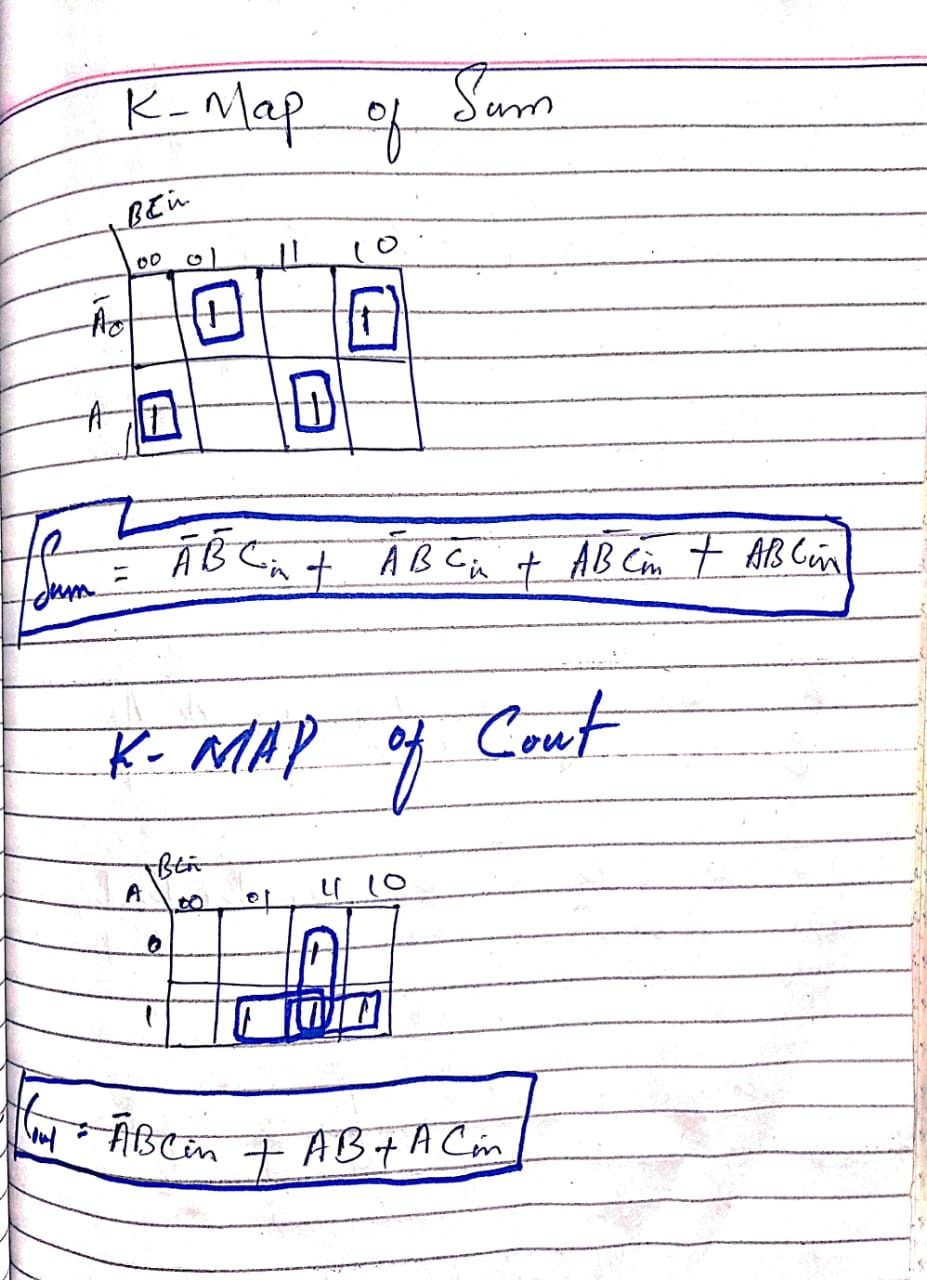 K-Map of Sum
BCin
00 01 11 10
Ā0 1 1
A 1 1 1
Sum = ĀB̄Cin + ĀBC̄in + AB̄C̄in + ABCin
K-MAP of Cout
BCin
A 00 01 11 10
0 1
1 1 1 1
Cout = ĀBCin + AB + ACin